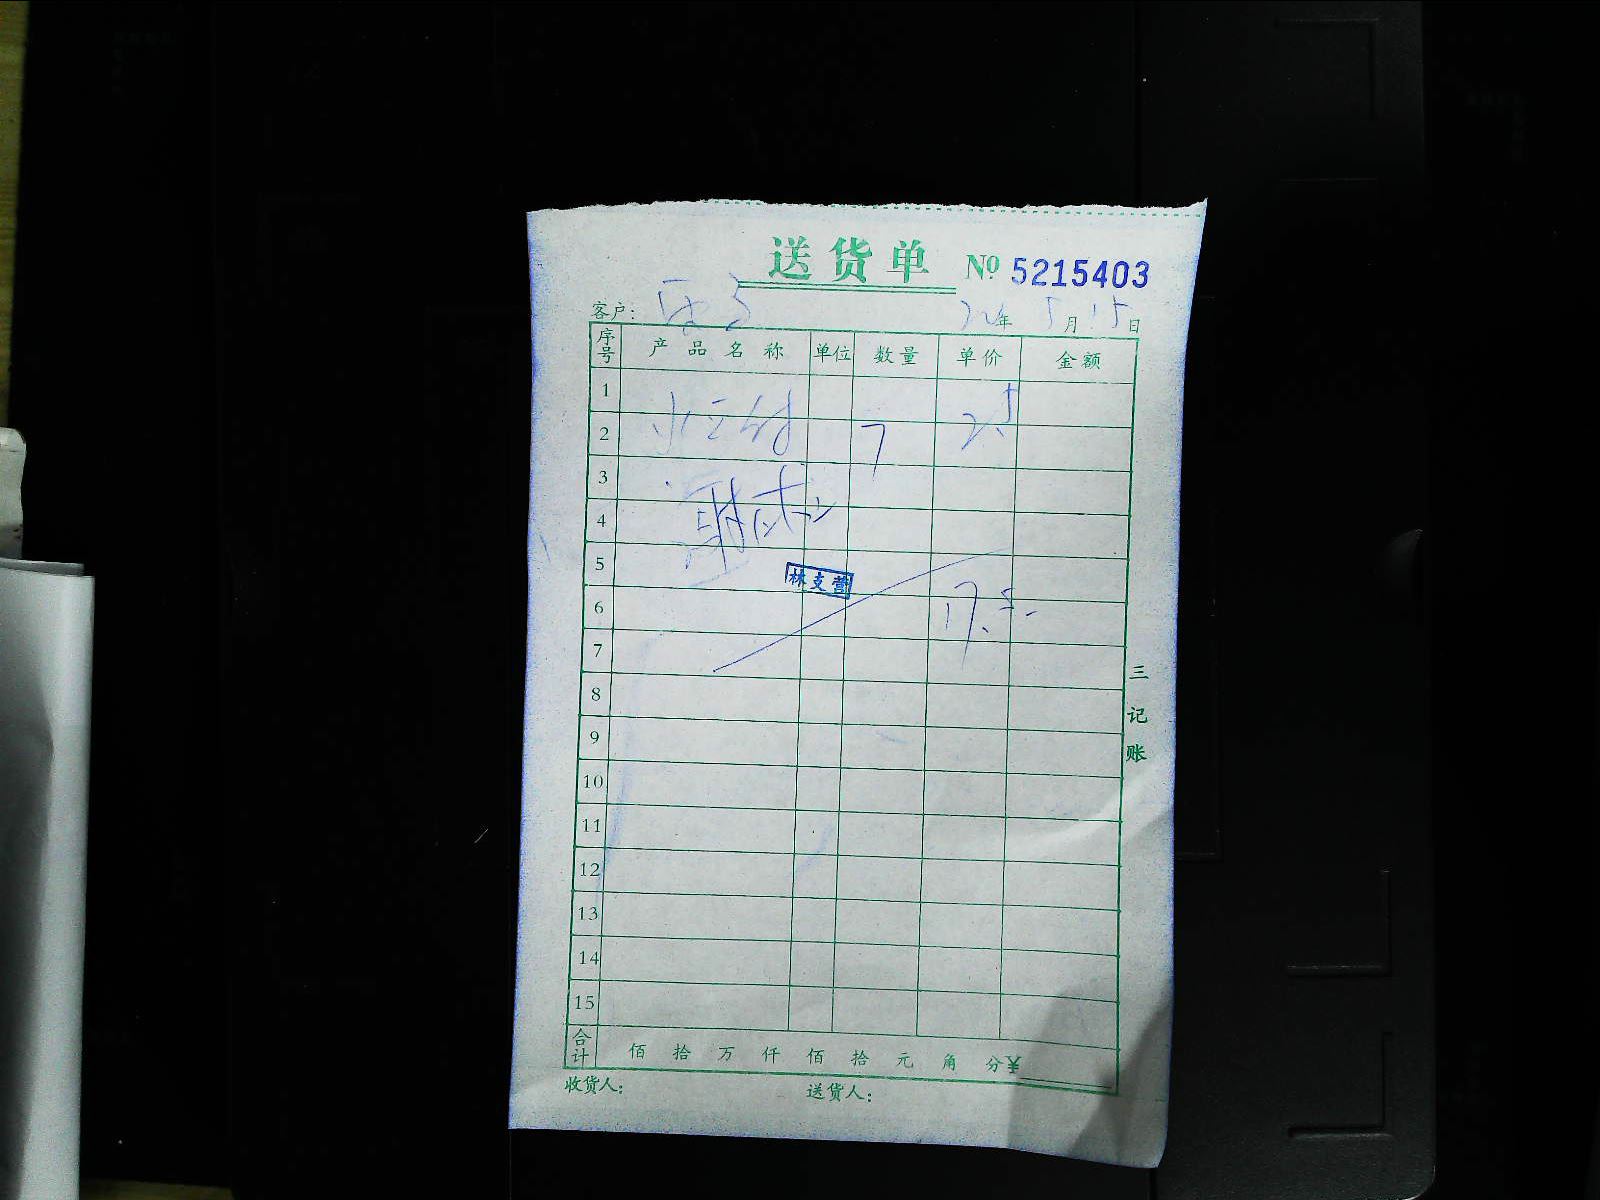 送货单 № 5215403
客户: 年 5月15日
序号 产品名称 单位 数量 单价 金额
1
2 7 2.5
3
4
5
林支营
6 17.5
7
8
9
10
11
12
13
14
15
合计 佰 拾 万 仟 佰 拾 元 角 分 ¥
收货人: 送货人:
三记账